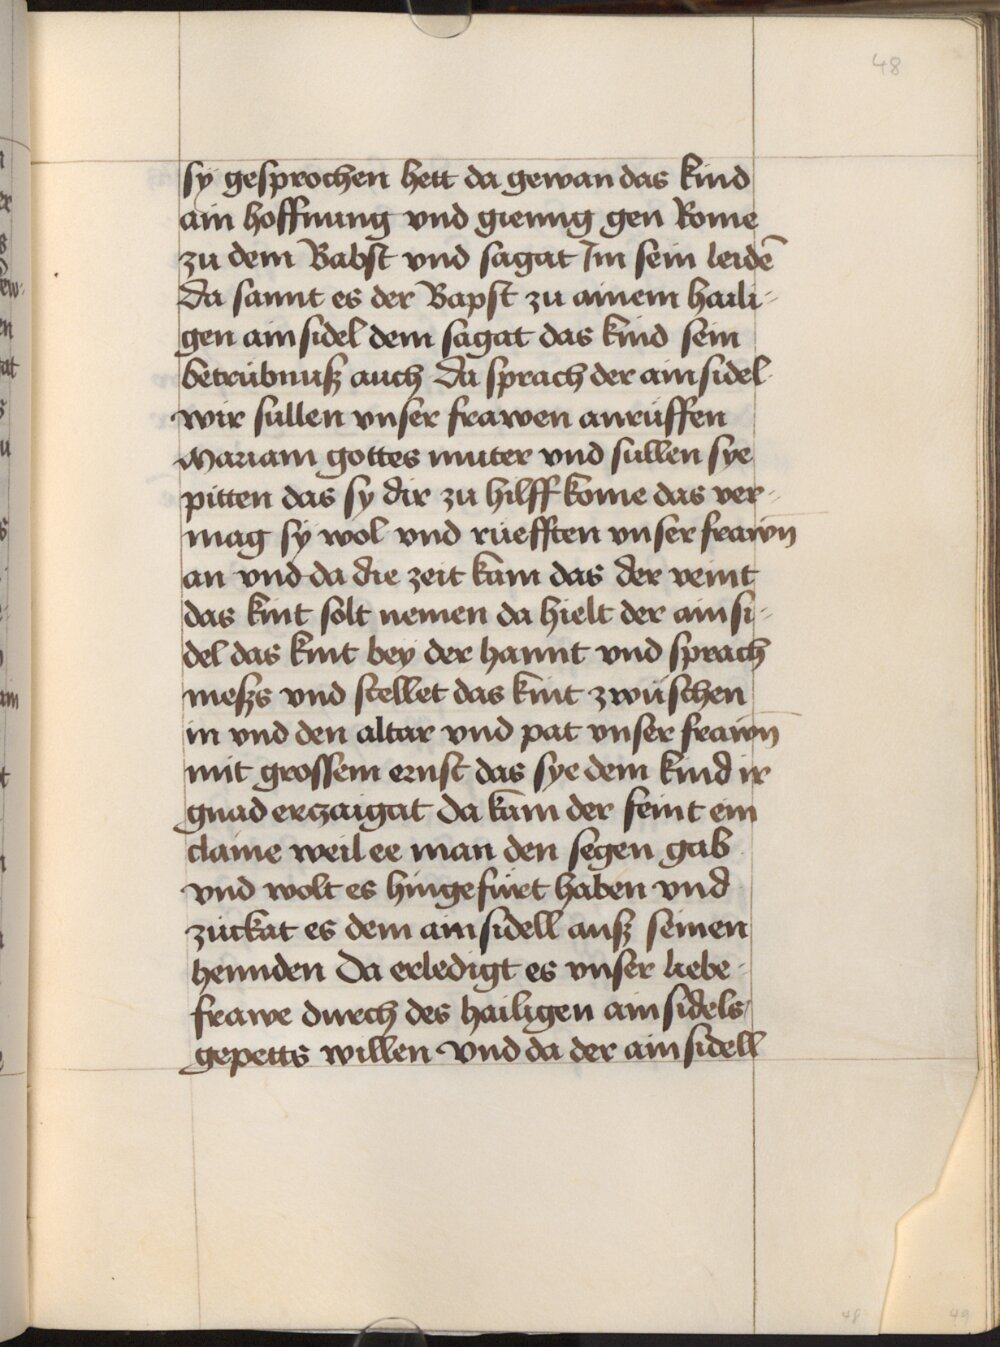 48
sÿ gesprochen hett da gewan das kind
ain hoffnung vnd gienng gen Rome
zu dem Babst vnd sagat Im sein leidē
Da sannt es der Bapst zu ainem haili-
gen ainsidel dem sagat das kind sein
betrübnusz auch Da sprach der ainsidel
wir sullen vnser frawen anrüffen
Mariam gottes muter vnd sullen sye
pitten das sy dir zu hilff kome das ver-
mag sÿ wol vnd rüefften vnser frawn̄
an vnd da die zeit kam das der veint
das kint solt nemen da hielt der ainsi-
del das kint beÿ der hannt vnd sprach
meszs vnd stellet das kint zwüschen
in vnd den altar vnd pat vnser frawn̄
mit grossem ernst das sye dem kind ir
gnad erczaigat da kam der feint ein
claine weil ee man den segen gab
vnd wolt es hingefürt haben vnd
zuckat es dem ainsidell ausz seinen
hennden Da erledigt es vnser liebe
frawe durch des hailigen ainsidels
gepetts willen vnd da der ainsidell
48
49